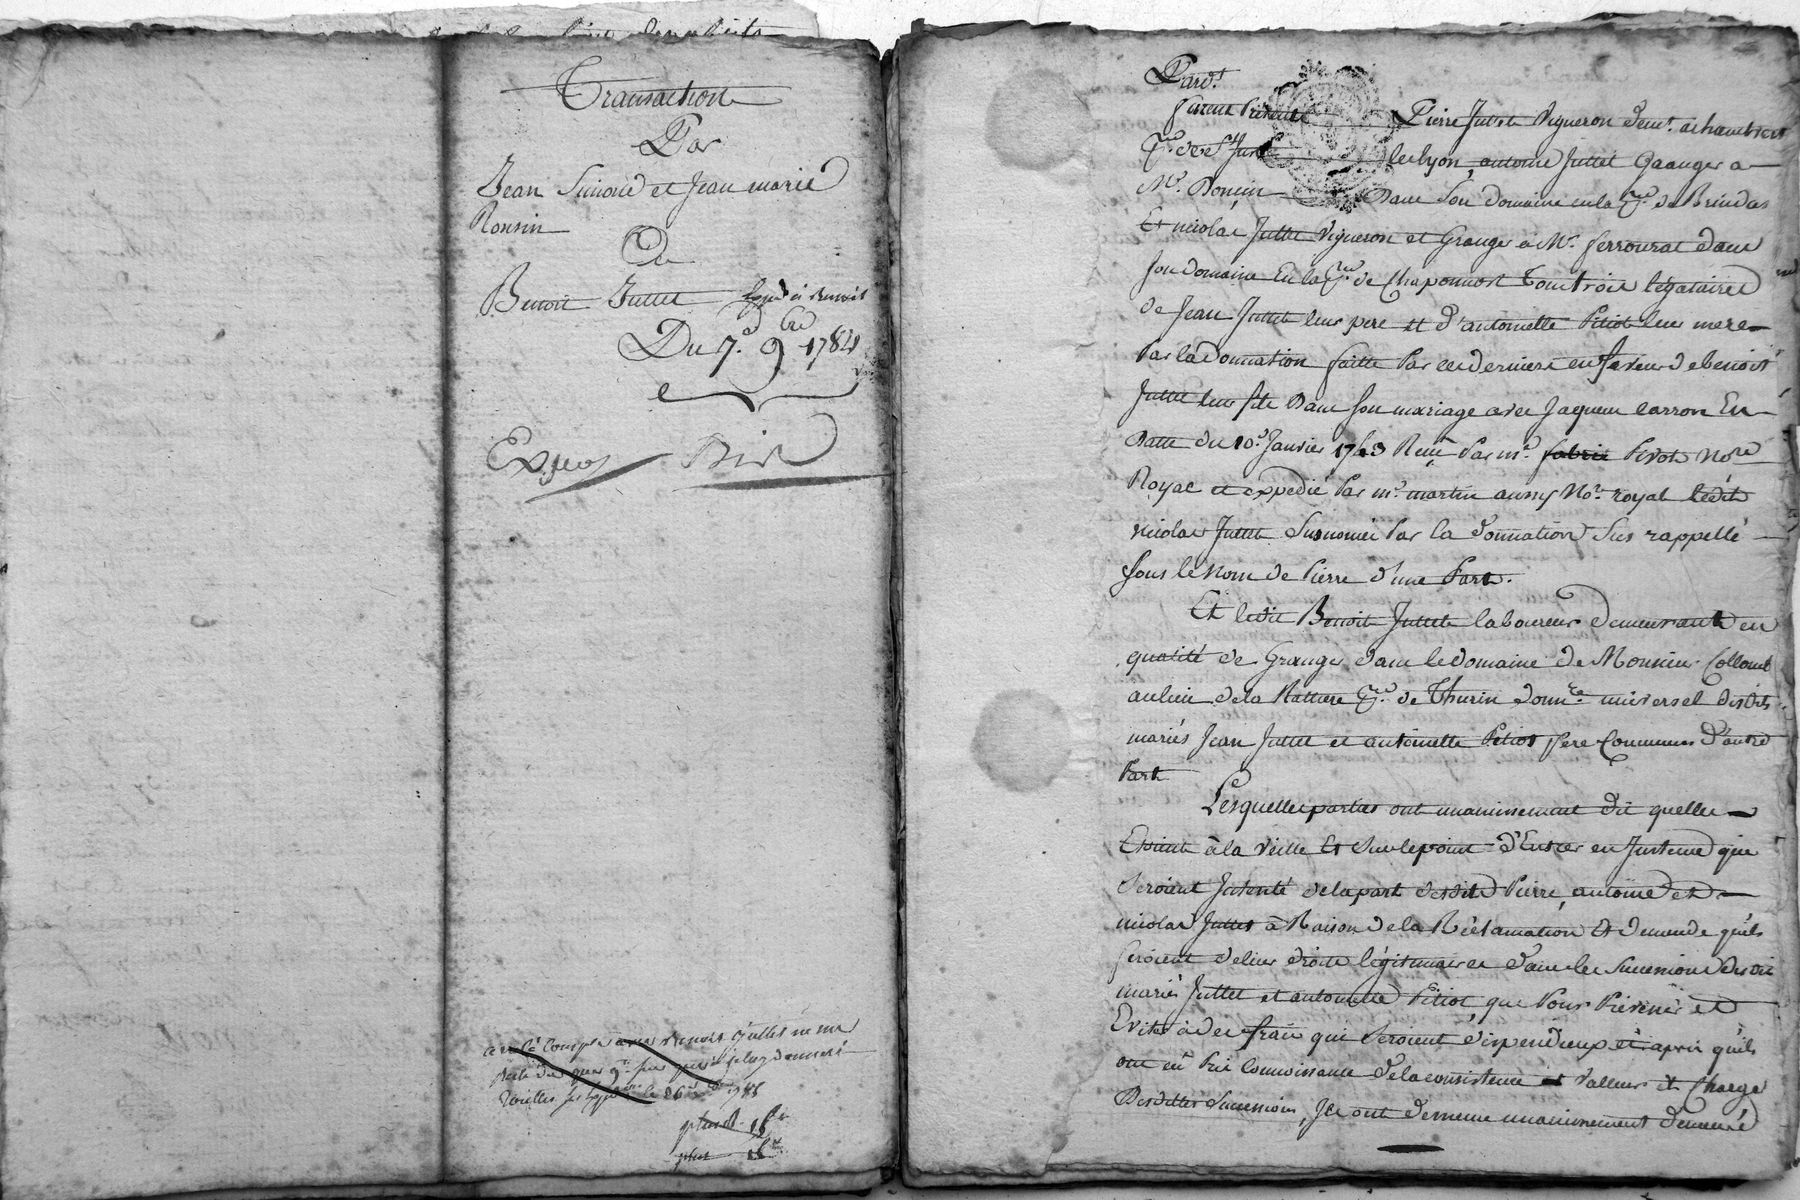 Transaction
Par
Jean Simond et Jean marie
Ronsin
Du
Benoit Juttet
Du 7.e 9bre 1784
Expe
a compte
le 26
plus
plus
Pardt
furent Présents Pierre Juttet Vigneron demt. a chambost
Psse de St Just lelyon, antoine Juttet Granger a
Mr. Doncin Dans son domaine en la Psse de Brindas
Et nicolas Juttet Vigneron et Granger a Mr. ferrourat dans
son domaine En la Psse de Chaponnost Tous trois légataires
de Jean Juttet leur pere et d'antoinette Pitiot leur mere
Par la donnation faitte Par ces derniers en faveur de benoit
Juttet leur fils Dans son mariage avec Jaqueme carron En
Datte du 10.e Janvier 1763 Reçu Par me. Pivot Nore
Royal et expedié Par me. martin aussy Nore. royal ledit
nicolas Juttet Surnomé Par la donnation Sus rappellé
sous le Nom de Pierre d'une Part.
Et ledit Benoit Juttet laboureur demeurant en
qualité de Granger dans le domaine de Monsieur Collomb
au lieu de la Rattiere Psse de Thurin donnre universel desdits
mariés Jean Juttet et antoinette Pitiot Pere Communs d'autre
Part
Lesquelles parties ont unanimement dit quelles
Etoient à la Veille Et Sur le point d'Entrer en Justence que
Seroient Intenté de la part desdits Pierre, antoine et
nicolas Juttet à Raison de la Réclamation Et demande quils
feroient de leurs droits légitimaires dans les Successions desdit
mariés Juttet et antoinette Pitiot, que Pour Prévenir et
Eviter à des frais qui Seroient dispendieux et après quils
ont eû Pris Connoissance de la consistence et Valleurs et Charge
Desdittes Successions, Ils ont de meme unanimement demeuré